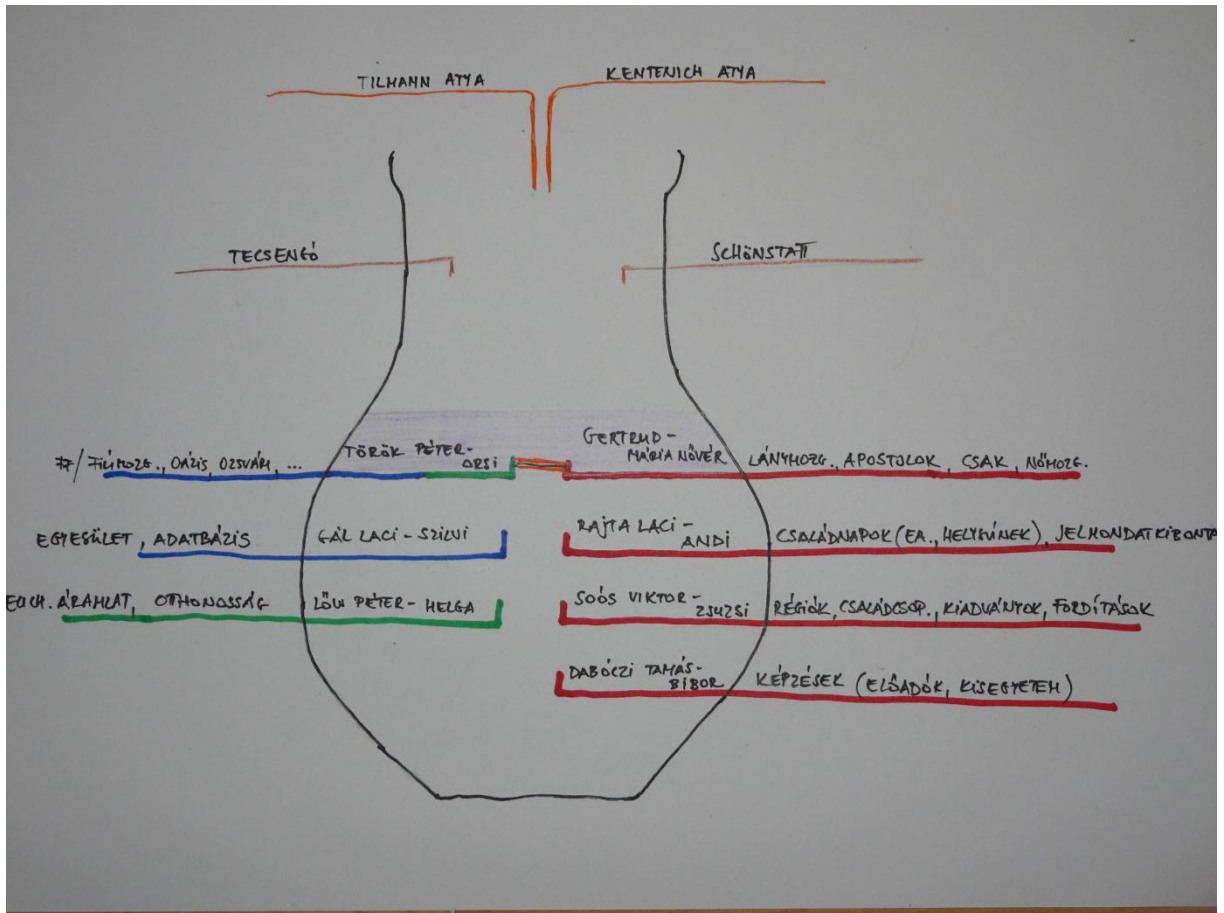 TILMANN ATYA
KENTENICH ATYA
TECSENGŐ
SCHÖNSTATT
FIÚMOZG., OÁZIS, OZSVÁM, ...
TÖRÖK PÉTER-
ORSI
GERTRUD-
MÁRIA NŐVÉR
LÁNYMOZG., APOSTOLOK, CSAK, NŐMOZG.
EGYESÜLET, ADATBÁZIS
GÁL LACI - SZILVI
RAJTA LACI -
ANDI
CSALÁDNAPOK (EA., HELYSZÍNEK), JELMONDATKIBONTÁ
EUCH. ÁRAMLAT, OTTHONOSSÁG
LŐW PÉTER - HELGA
SOÓS VIKTOR-
ZSUZSI
RÉGIÓK, CSALÁDCSOP., KIADVÁNYOK, FORDÍTÁSOK
DABÓCZI TAMÁS-
BIBOR
KÉPZÉSEK (ELŐADÓK, KISEGYETEM)